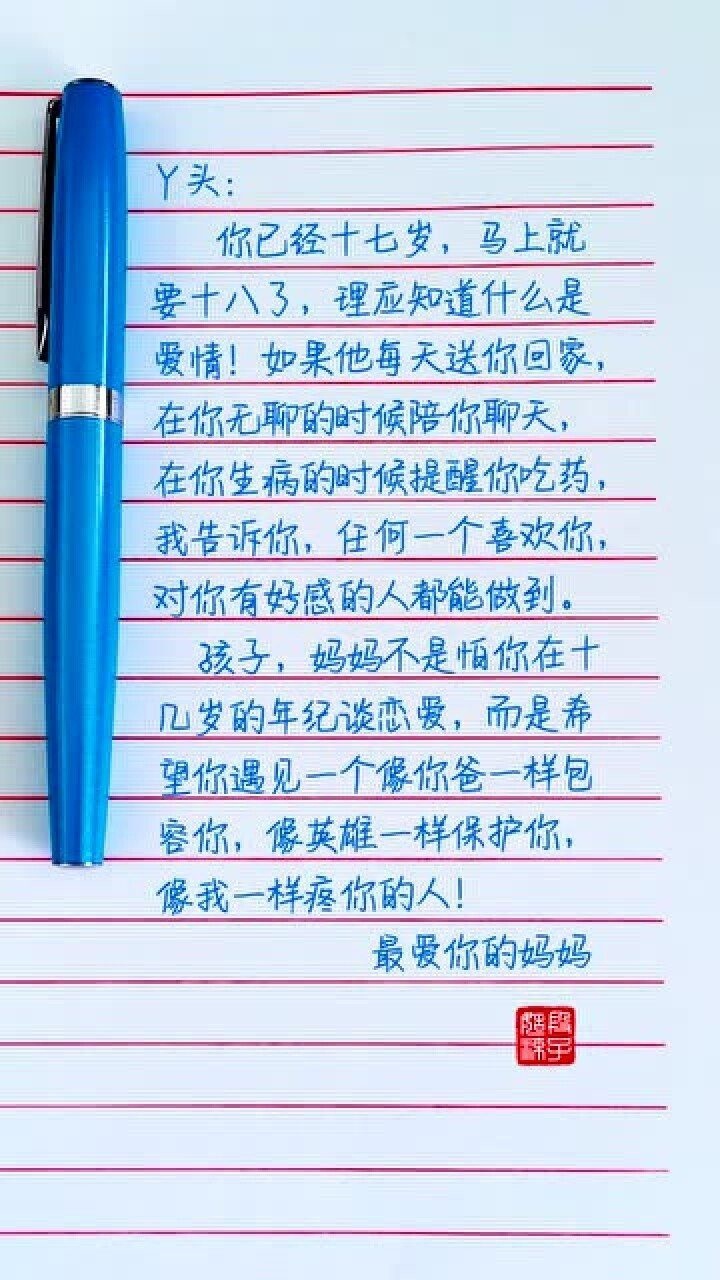 丫头：
你已经十七岁，马上就
要十八了，理应知道什么是
爱情！如果他每天送你回家，
在你无聊的时候陪你聊天，
在你生病的时候提醒你吃药，
我告诉你，任何一个喜欢你，
对你有好感的人都能做到。
孩子，妈妈不是怕你在十
几岁的年纪谈恋爱，而是希
望你遇见一个像你爸一样包
容你，像英雄一样保护你，
像我一样疼你的人！
最爱你的妈妈